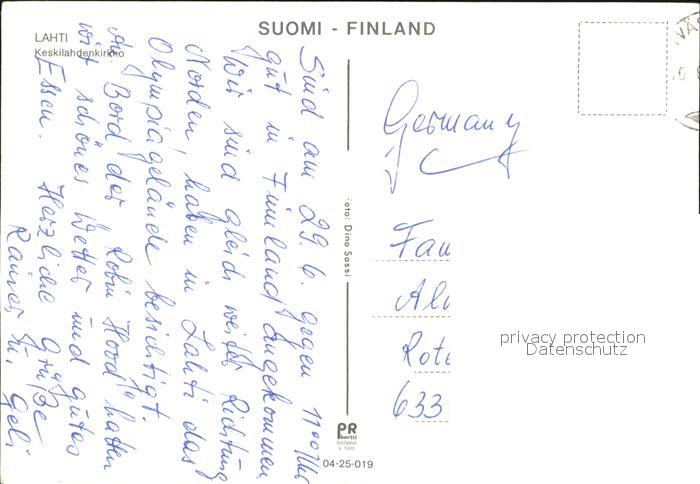 SUOMI - FINLAND
LAHTI
Keskilahdenkirkko
Sind am 29. 6. gegen 11⁰⁰ Uhr
gut in Finnland angekommen
Wir sind gleich weiter Richtung
Norden, haben in Lahti das
Olympiagelände besichtigt.
An Bord der "Robin Hood" hatten
wir schönes Wetter und gutes
Essen. Herzliche Grüße
Rainer u. Geli
Foto: Dino Sassi
PR
kortti
04-25-019
Germany
Fam
Al
Rote
633
privacy protection
Datenschutz